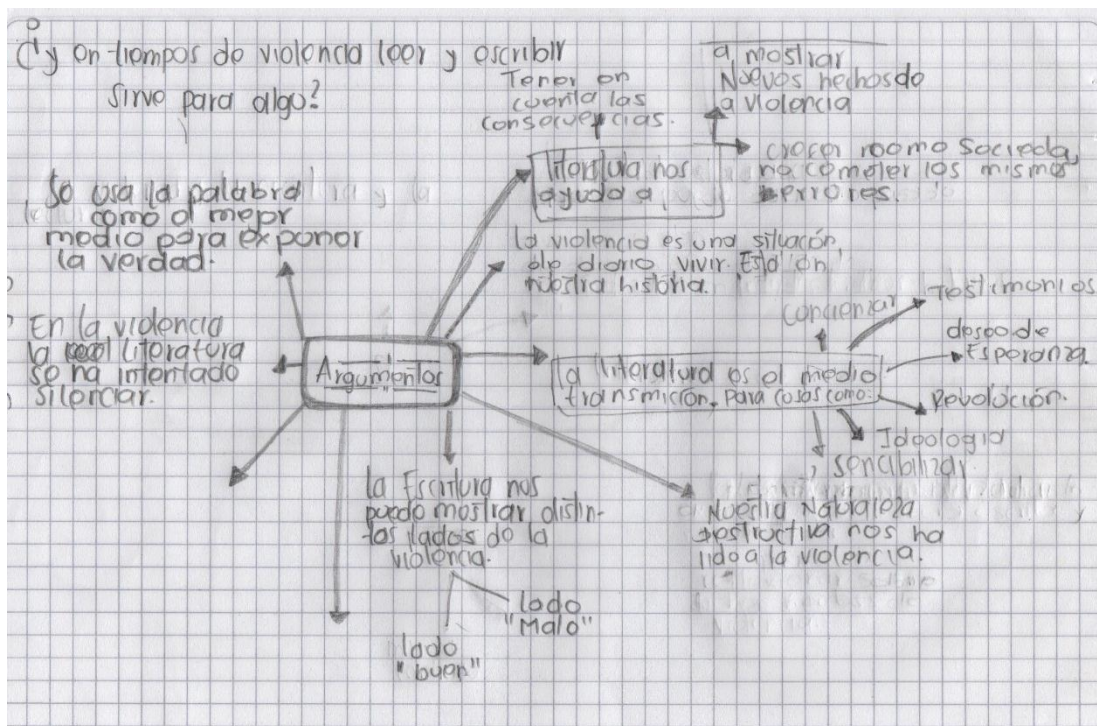 ¿y en tiempos de violencia leer y escribir
sirve para algo?
Tener en
cuenta las
consecuencias.
a mostrar
Nuevos hechos de
a violencia
literatura nos
ayuda a
crecer como Socieda,
no cometer los mismos
errores.
Se usa la palabra
como el mejor
medio para exponer
la verdad.
la violencia es una situación
del diario vivir. Esta en
nuestra historia.
En la violencia
la literatura
se ha intentado
silenciar.
Argumentos
la literatura es el medio
transmición. para cosas como:
concienzar
Testimonios
deseo de
Esperanza.
Revolución.
Ideologia
sencibilizar.
la Escritura nos
puede mostrar distin-
tos lados de la
violencia.
lado
"Malo"
lado
"buen"
Nuestra Naturaleza
destructiva nos ha
a la violencia.